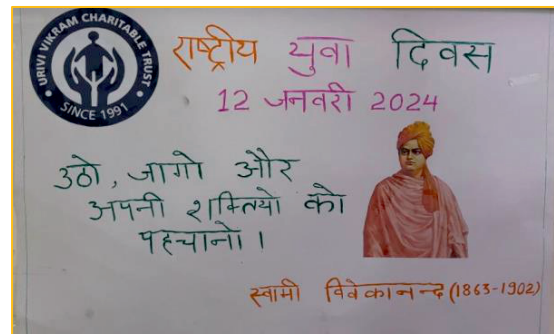 URIVI VIKRAM CHARITABLE TRUST
SINCE 1991
राष्ट्रीय युवा दिवस
12 जनवरी 2024
उठो, जागो और
अपनी शक्तियो को
पहचानो।
स्वामी विवेकानन्द (1863-1902)